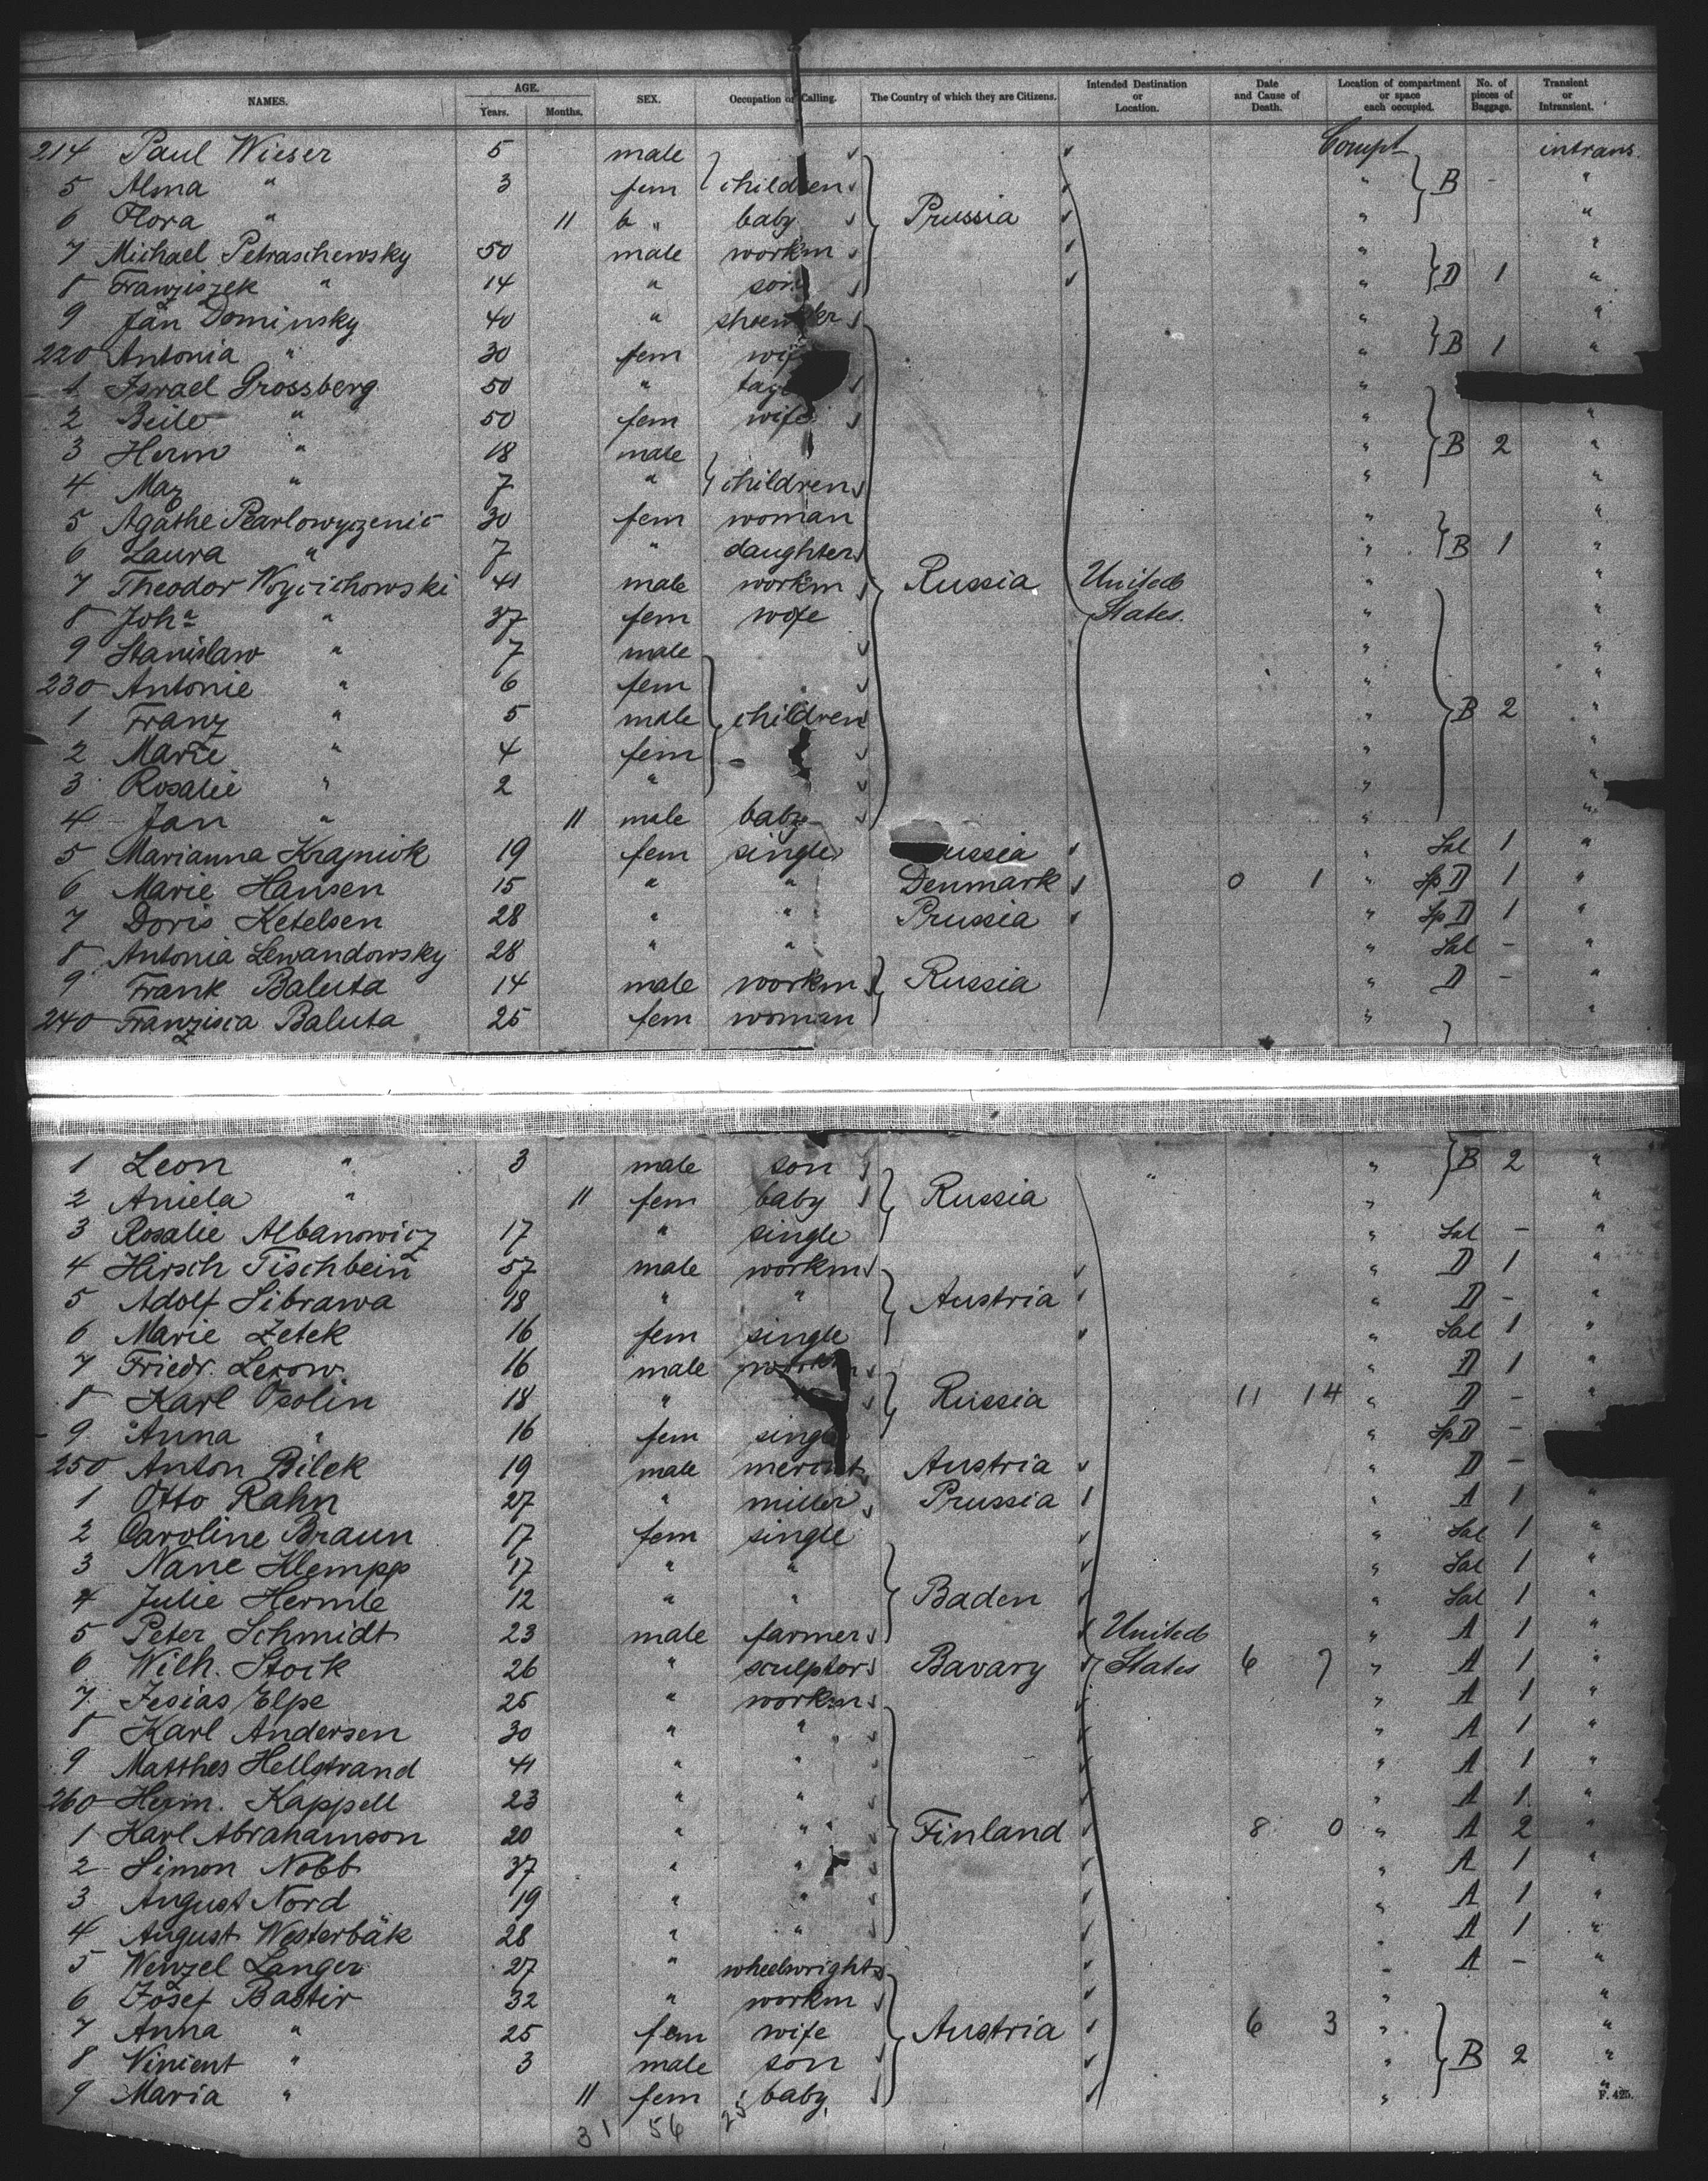 NAMES. AGE. Years. Months. SEX. Occupation or Calling. The Country of which they are Citizens. Intended Destination or Location. Date and Cause of Death. Location of compartment or space each occupied. No. of pieces of Baggage. Transient or Intransient.
214 Paul Wieser 5 male Compt intrans.
5 Alma " 3 fem children " B - "
6 Flora " 11 " baby Prussia " "
7 Michael Petraschewsky 50 male workm " "
8 Franziszek " 14 " son " D 1 "
9 Jan Dominsky 40 " " "
220 Antonia " 30 fem " B 1 "
1 Israel Grossberg 50 " "
2 Beile " 50 fem wife " "
3 Herm " 18 male " B 2 "
4 Max " 7 " children " "
5 Agathe 30 fem woman " "
6 Laura " 7 " daughter " B 1 "
7 Theodor Woycichowski 41 male workm Russia United "
8 Joha " 37 fem wife States. " "
9 Stanislaw " 7 male " "
230 Antonie " 6 fem " "
1 Franz " 5 male children " B 2 "
2 Marie " 4 fem " "
3 Rosalie " 2 " " "
4 Jan " 11 male baby " "
5 Marianna Krajniok 19 fem single ussia " Sal 1 "
6 Marie Hansen 15 " " Denmark 0 1 " Sp D 1 "
7 Doris Ketelsen 28 " " Prussia " Sp D 1 "
8 Antonia Lewandowsky 28 " " " Sal - "
9 Frank Baluta 14 male workm Russia " D - "
240 Franzisca Baluta 25 fem woman " "
1 Leon " 3 male son " " B 2 "
2 Aniela " 11 fem baby Russia " "
3 Rosalie Albanowicz 17 " single " Sal - "
4 Hirsch Tischbein 57 male workm " D 1 "
5 Adolf Sibrawa 18 " " Austria " D - "
6 Marie Zetek 16 fem single " Sal 1 "
7 Friedr. Lerow. 16 male workm " D 1 "
8 Karl Osolin 18 " Russia 11 14 " D - "
9 Anna " 16 fem single " Sp D -
250 Anton Bilek 19 male Austria " D -
1 Otto Rahn 27 " miller Prussia " A 1 "
2 Caroline Braun 17 fem single " Sal 1 "
3 Nane Klempp 17 " " " Sal 1 "
4 Julie Hermle 12 " " Baden " Sal 1 "
5 Peter Schmidt 23 male farmer United " A 1 "
6 Wilh. Stock 26 " sculptor Bavary States 6 7 " A 1 "
7 Jesias Elpe 25 " workm " A 1 "
8 Karl Andersen 30 " " " A 1 "
9 Matthes Hellstrand 41 " " " A 1 "
260 Herm. Kappell 23 " " " A 1 "
1 Karl Abrahamson 20 " " Finland 8 0 " A 2 "
2 Simon Nobb 37 " " " A 1 "
3 August Nord 19 " " " A 1 "
4 August Westerbäk 28 " " " A 1 "
5 Wenzel Langer 27 " wheelwright " A - "
6 Josef Bastir 32 " workm " "
7 Anna " 25 fem wife Austria 6 3 " "
8 Vinient " 3 male son " B 2 "
9 Maria " 11 fem baby " "
F. 425.
31 56 25